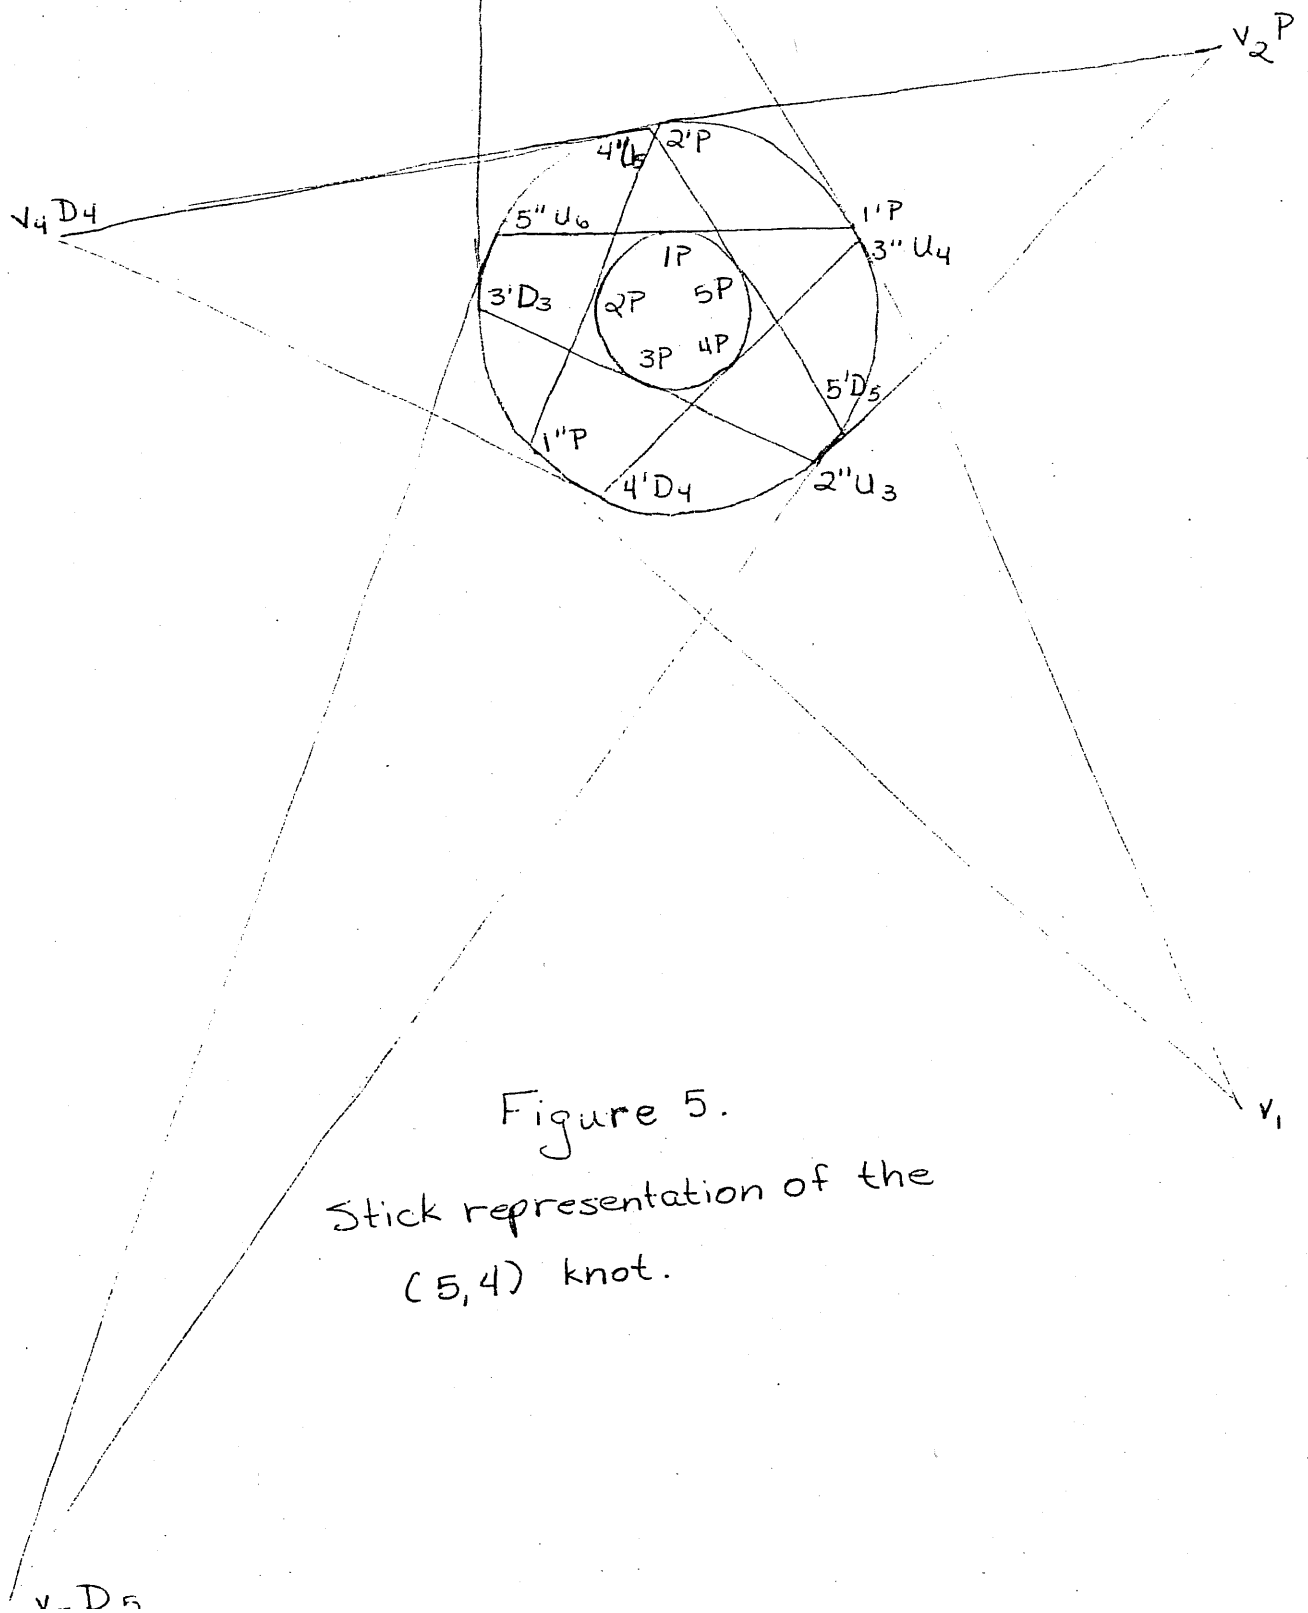 V₂P
4"U₅ 2'P
V₄D₄
5"U₆
1'P
3"U₄
1P
3'D₃
2P
5P
3P
4P
5'D₅
1"P
4'D₄
2"U₃
V₁
Figure 5.
Stick representation of the
(5,4) knot.
D₅